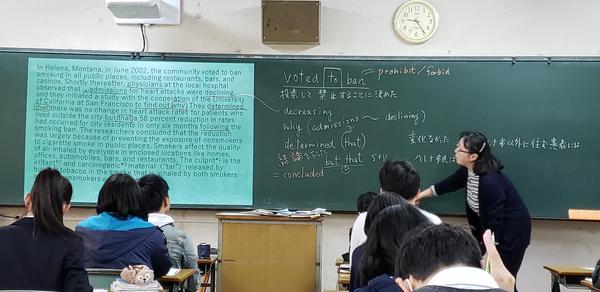 In Helena, Montana, in June 2002, the community voted to ban
smoking in all public places, including restaurants, bars, and
casinos. Shortly thereafter, physicians at the local hospital
observed that admissions for heart attacks were declining,
and they initiated a study with the cooperation of the University
of California at San Francisco to find out why. They determined
that there was no change in heart attack rates for patients who
lived outside the city but that a 58 percent reduction in rates
had occurred for city residents in only six months following the
smoking ban. The researchers concluded that the reduction
was largely because of preventing the exposure of nonsmokers
to cigarette smoke in public places. Smokers affect the quality
of air inhaled by everyone in enclosed locations like homes,
offices, automobiles, bars, and restaurants. The culprit is the
irritant and carcinogenic material ("tar") released by
tobacco in the smoke that is inhaled by both smokers
smokers
voted to ban = prohibit / forbid
投票して禁止することに決めた
decreasing
why (admissions ~ declining)
determined (that) ①
but that S+V
②
= concluded
変化なかった
市以外に住む患者には
ヘレナ市民は